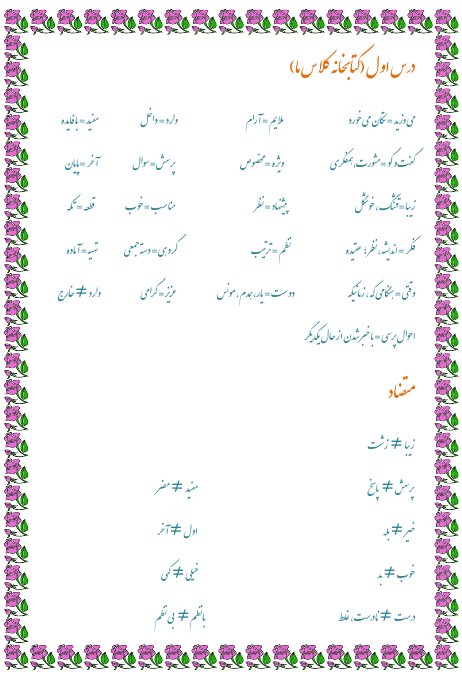 درس اول (کتابخانه کلاس ما)
می وزید = تکان می خورد ملایم = آرام وارد = داخل مفید = با فایده
گفت و گو = مشورت، همفکری ویژه = مخصوص پرسش = سوال آخر = پایان
زیبا = قشنگ، خوشگل پیشنهاد = نظر مناسب = خوب قطعه = تکه
فکر = اندیشه، نظر، عقیده نظم = ترتیب گروهی = دسته جمعی تهیه = آماده
وقتی = هنگامی که، زمانیکه دوست = یار، همدم، مونس عزیز = گرامی وارد ≠ خارج
احوال پرسی = با خبر شدن از حال یکدیگر
متضاد
زیبا ≠ زشت
پرسش ≠ پاسخ مفید ≠ مضر
خیر ≠ بله اول ≠ آخر
خوب ≠ بد خیلی ≠ کمی
درست ≠ نادرست، غلط با نظم ≠ بی نظم